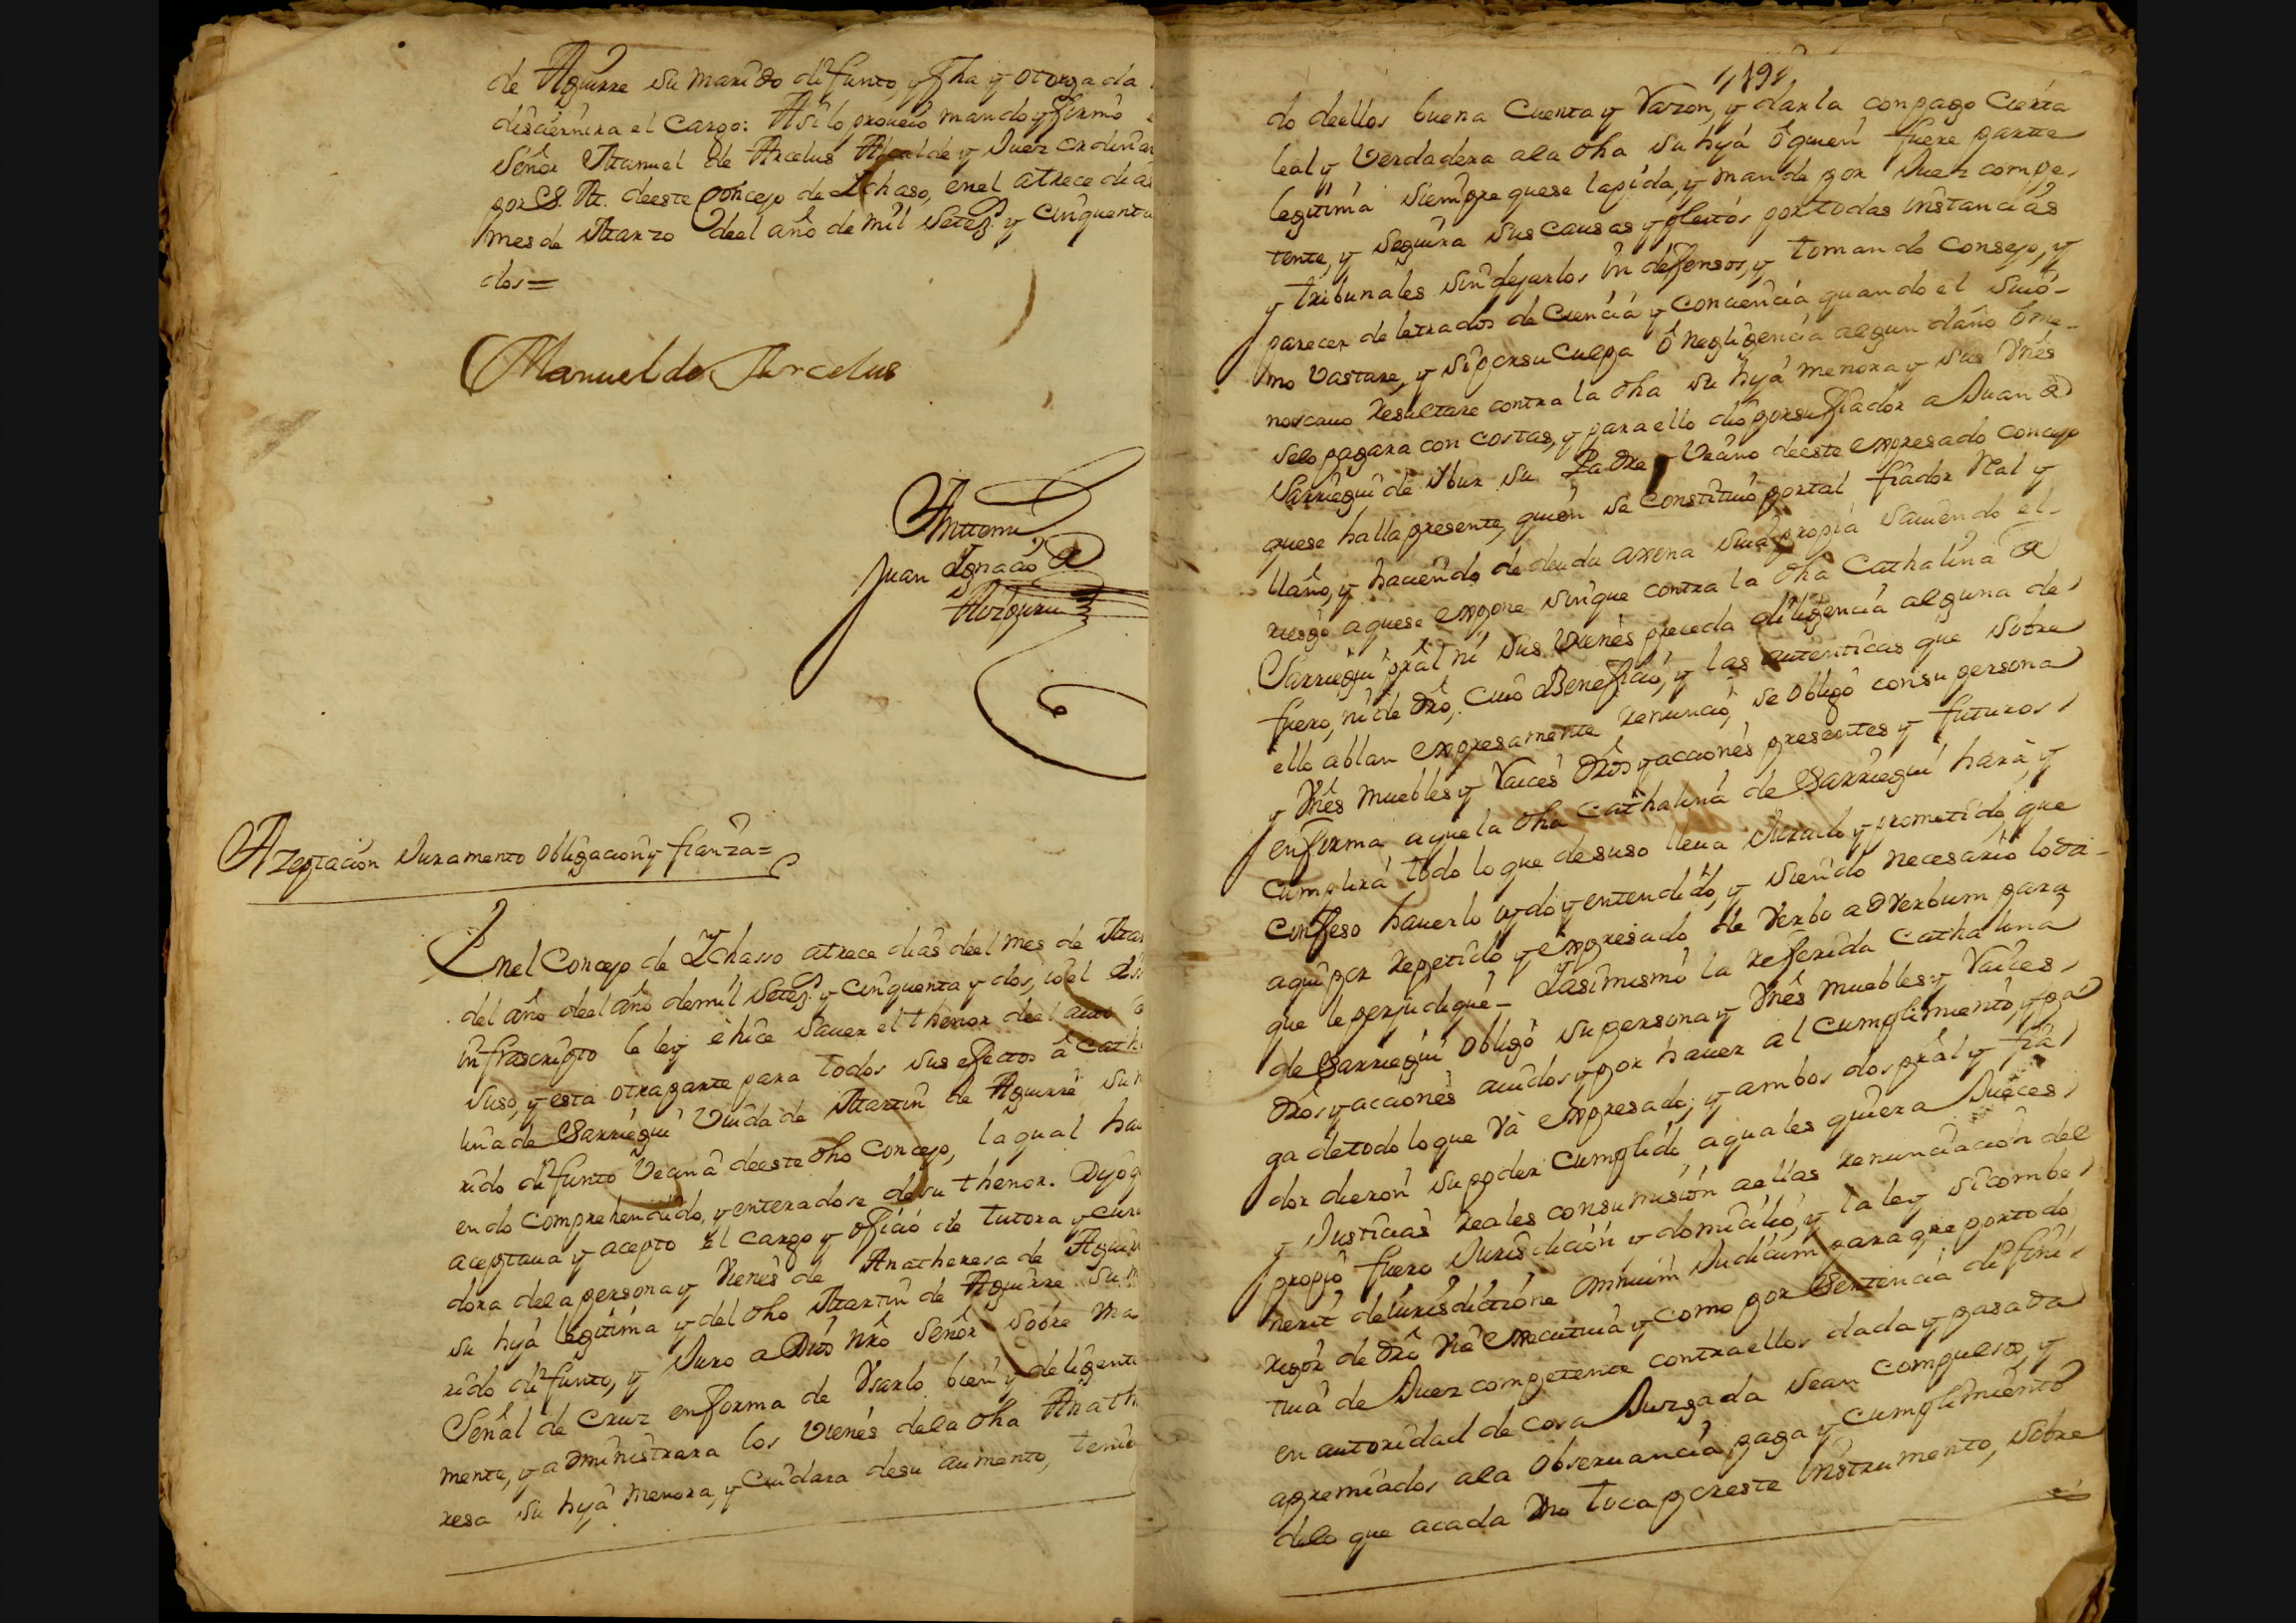 de Aguirre su marido difunto, y fha y otorgada
discernira el Cargo: Asi lo proveio mando y firmò
Señor Manuel de Arcelus Alcalde y Juez ordinar
por S. M. de este Concejo de Ichaso, en el a trece dias
mes de Marzo deel año de mil Setez.s y Cinquenta
dos=
Manuel de Arcelus
Antemi
Juan Ignacio de
Azeptacion Juramento obligacion y fianza=
En el Concejo de Ichasso a trece dias deel mes de Mar
del año deel año de mil Setez.s y Cinquenta y dos, io el
infrascripto le ley è hice Saver el thenor deel auto
Suso, y esta otra parte para todos sus efectos â Cath
lina de Sarriegui Viuda de Martin de Aguirre su
rido difunto Vecina de este dho Concejo, la qual hau
endo comprehendido, y enteradose de su thenor. Dijo q
aceptaua y acepto el cargo y oficio de tutora y cur
dora de la persona y Vienes de Ana theresa de Aguir
su hija legitima y del dho Martin de Aguirre su m
rido difunto, y Juro a Dios nrô Señor sobre Ma
Señal de Cruz en forma de Vsarlo bien y deligente
mente, y administrara los Vienes de la dha Ana th
resa su hija menora, y Cuidara de su aumento, tenie
do de ellos buena Cuenta y Razon, y darla con pago Cierta
leal y Verdadera a la dha su hija ô quien fuere partte
legitima siempre que se la pida, y mande por Juez compe
tente, y seguira sus causas y pleitos por todas instancias
y tribunales sin dejarlos indefensos, y tomando Consejo, y
parecer de letrados de Ciencia y Conciencia quando el suio-
mo Vastare, y si por su Culpa ô negligencia algun daño ô me-
noscauo resultare contra la dha su hija menora y sus Vnês
se lo pagara con costas, y para ello dio por su fiador a Juan de
Sarriegui de Ybur su Padre Vecino de este expresado concejo
que se halla presente, quien se constituiò por tal fiador Ral y
llano, y haciendo de deuda axena suia propia Sauiendo el-
riesgo a que se expone sin que contra la dha Cathalina de
Sarriegui prâl ni sus Vienes preceda diligencia alguna de
fuero, ni de drô, Cuio Beneficio, y las autenticas que sobre
ello ablan expresamente renunciò, se obligò con su persona
y Vnês muebles y Raices drôs y acciones presentes y futuros
en forma a que la dha Cathalina de Sarriegui harà y
Cumplirà todo lo que de suso lleva Jurado y prometido que
confeso hauerlo oydo y entendido, y siendo necesario lo da-
aqui por repetido y expresado de Verbo ad Verbum para
que le perjudique- Y asimismo la referida Cathalina
de Sarriegui obligò su persona y Vnês muebles y Raices
drôs y acciones auidos y por hauer al Cumplimento, y pa
ga de todo lo que và expresado; y ambos dos prâl y fia
dor dieron su poder Cumplido a quales quiera Jueces
y Justicias reales con sumision a ellas renunciacion del
propio fuero Jurisdicion y domicilio, y la ley si combe
nerit de Iurisdictione omnium Judicum para que por todo
rigor de drô Via executiua y como por Sentencia difini
tiua de Juez competente contra ellos dada y pasada
en autoridad de cosa Juzgada sean compulsos, y
apremiados a la observancia paga y Cumplimiento
de lo que a cada Vno toca por este instrumento, sobre